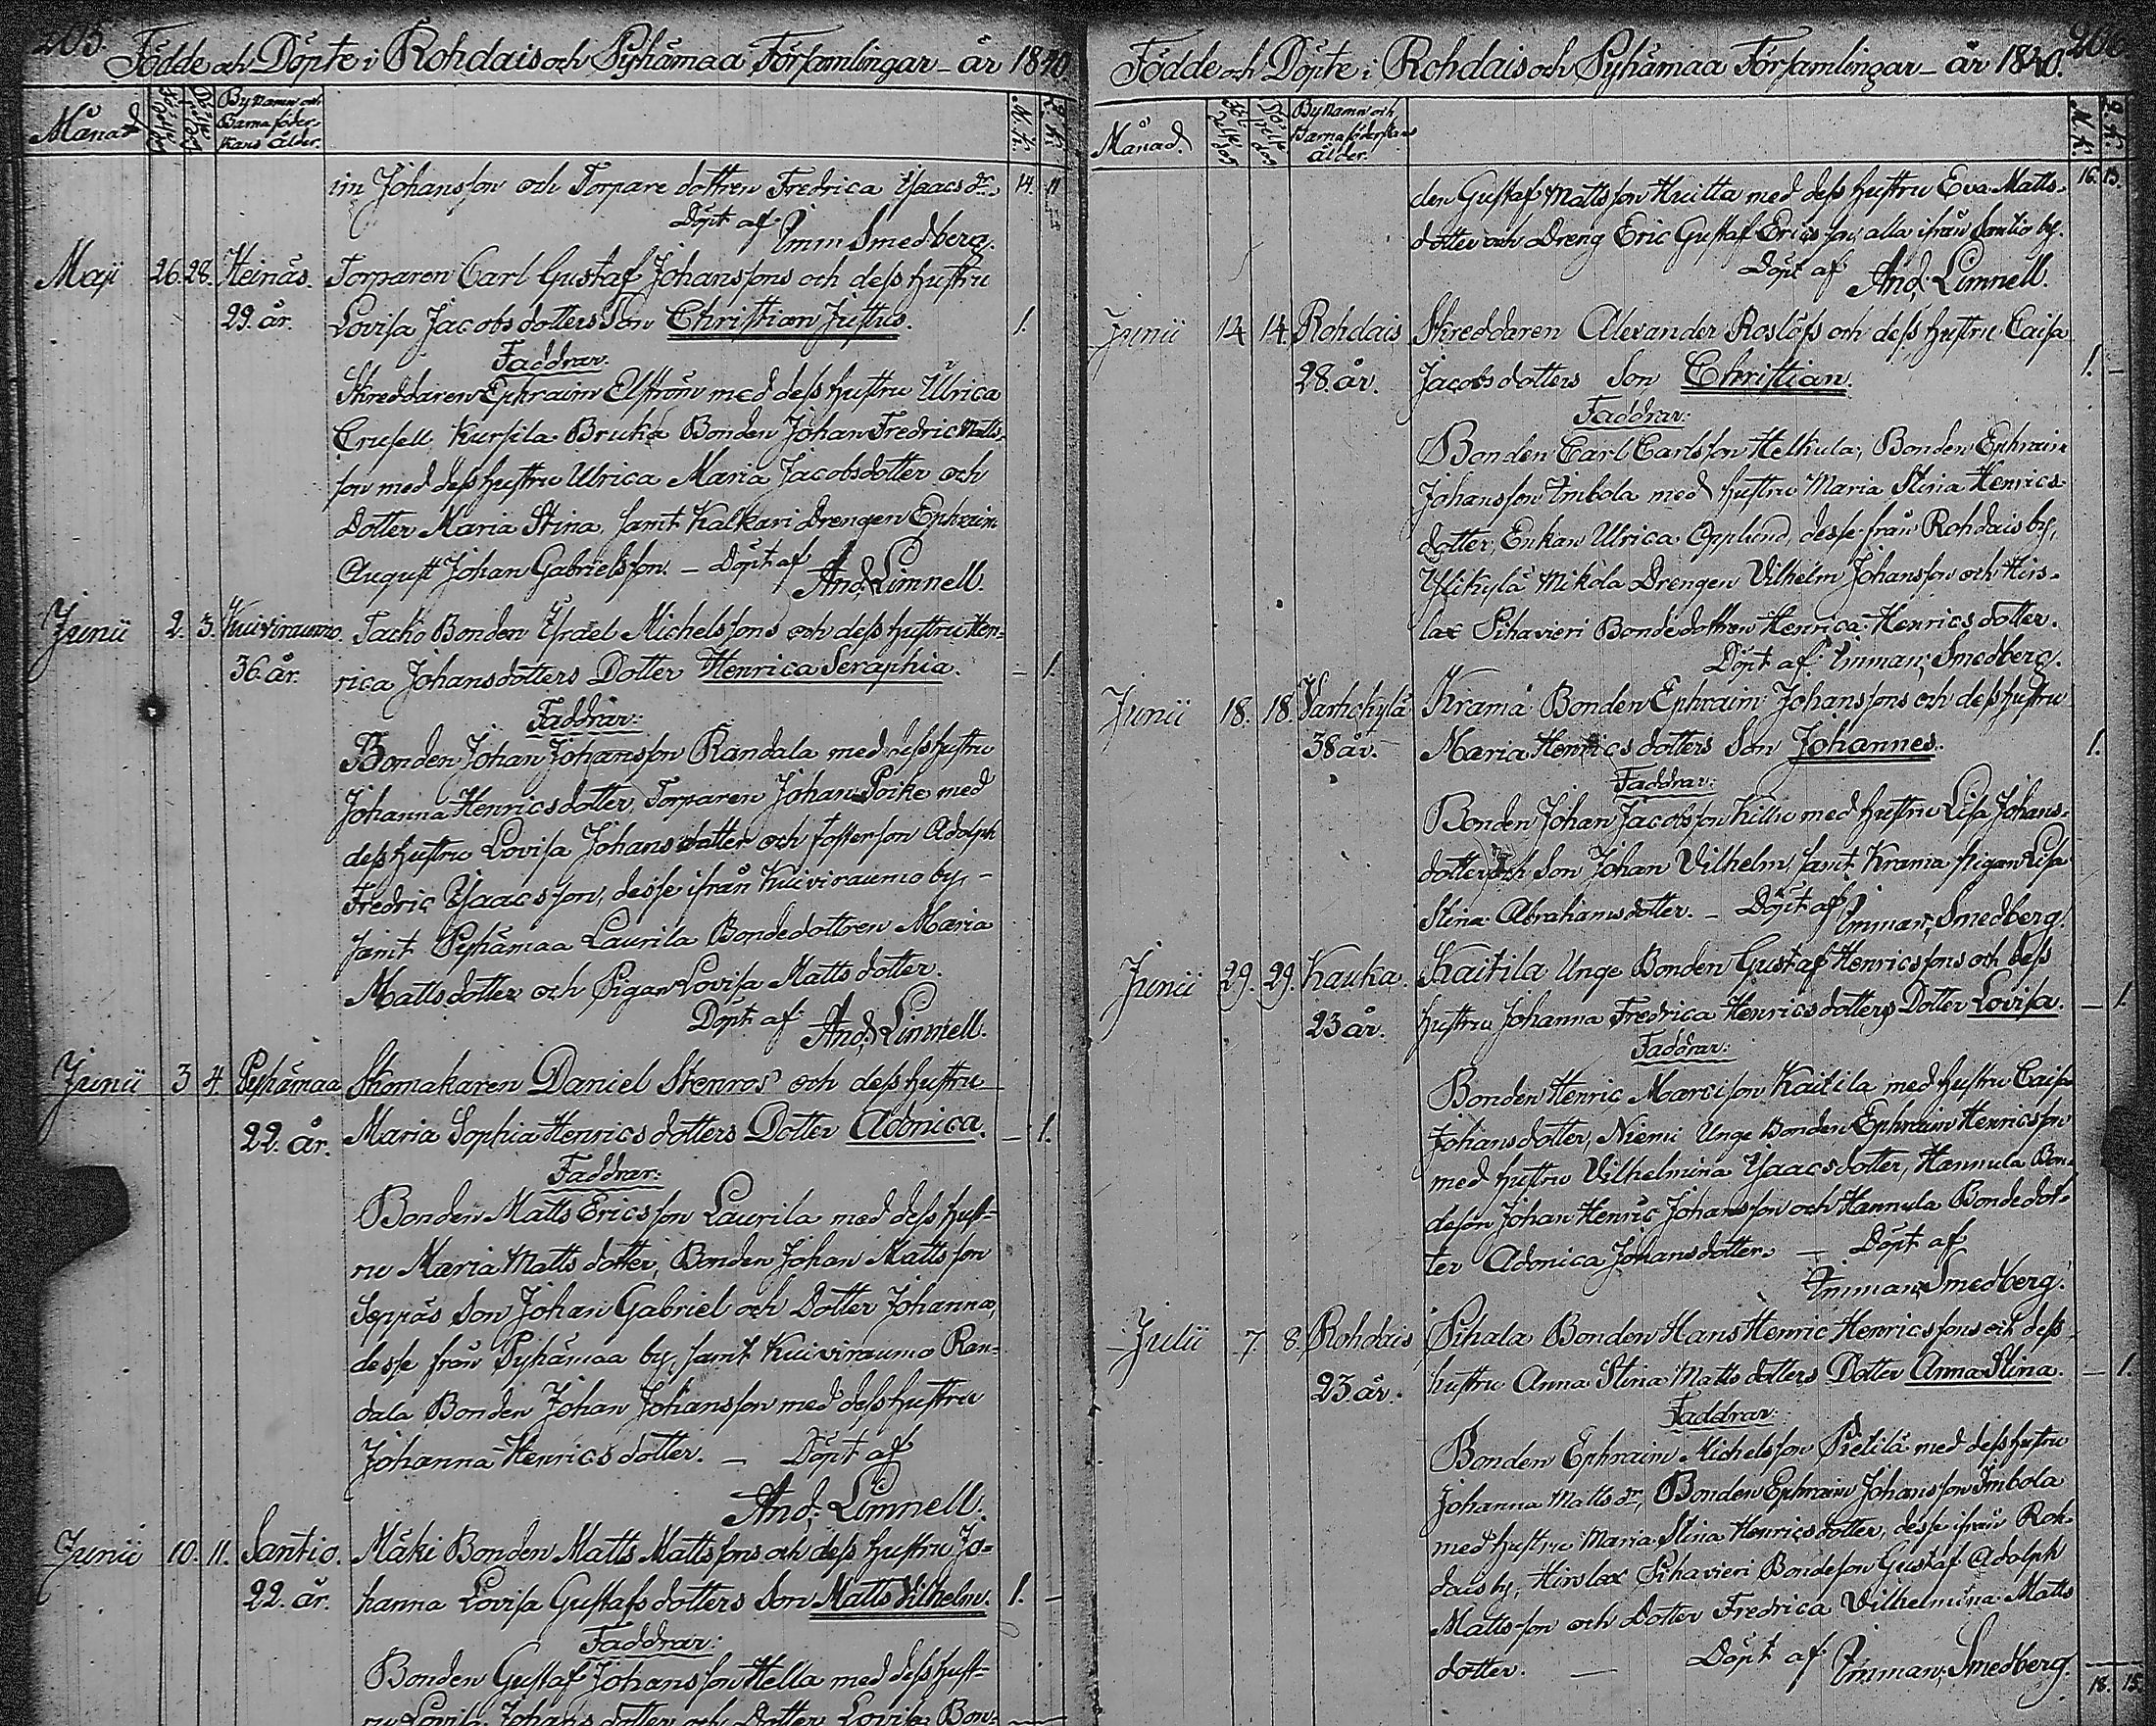 205.
Födde och Döpte i Rohdais och Pyhämaa Församlingar – år 1840
Månad
By Namn och
Barnaföder-
skans Ålder.
M.k. Q.k.
im Johansson och Torpare dottren Fredrica Isaacs dr. 14. 11
Döpt af Imm Smedberg.
Maji 26. 28. Heinäs. Torparen Carl Gustaf Johanssons och dess hustru
29. år. Lovisa Jacobs dotters Son Christian Justus. 1.
Faddrar:
Skreddaren Ephraim Elström med dess hustru Ulrica
Crusell, Kursila Bruka Bonden Johan Fredric Matts-
son med dess hustru Ulrica Maria Jacobsdotter och
Dotter Maria Stina, samt Kalkari drengen Ephraim
August Johan Gabrielsson. – Döpt af And. Limnell.
Junii 2. 3. Kuiviraumo. Jacko Bonden Israel Michelssons och dess hustru Hen-
36. år. rica Johansdotters Dotter Henrica Seraphia. – 1.
Faddrar:
Bonden Johan Johansson Randala med dess hustru
Johanna Henricsdotter, Torparen Johan Poike med
dess hustru Lovisa Johansdotter och fosterson Adolph
Fredric Isaacsson, desse ifrån Kuiviraumo by, –
samt Pyhämaa Laurila Bondedottren Maria
Mattsdotter och Pigan Lovisa Matts dotter.
Döpt af And. Limnell.
Junii 3 4. Pyhämaa Skomakaren Daniel Stenros och dess hustru
22. år. Maria Sophia Henrics dotters Dotter Adonica. – 1.
Faddrar:
Bonden Matts Ericsson Laurila med dess hust-
ru Maria Matts dotter, Bonden Johan Mattsson
Seppäs Son Johan Gabriel och Dotter Johanna,
desse från Pyhämaa by, samt Kuiviraumo Ran-
dala Bonden Johan Johansson med dess hustru
Johanna Henrics dotter. – Döpt af
And. Limnell.
Junii 10. 11. Santio. Mäki Bonden Matts Mattssons och dess hustru Jo-
22. år. hanna Lovisa Gustafs dotters Son Matts Vilhelm. 1. –
Faddrar:
Bonden Gustaf Johansson Hella med dess hust-
ru Lovisa Johans dotter och Dotter Lovisa, Bon-
206
Födde och Döpte i Rohdais och Pyhämaa Församlingar – år 1840.
Månad.
By Namn och
Barnaföderskans
ålder.
M.k. Q.k.
den Gustaf Mattsson Huitta med dess hustru Eva Matts- 16. 13.
dotter och Dreng Eric Gustaf Ericsson, alla ifrån Santio by.
Döpt af And. Limnell.
Junii 14 14. Rohdais Skreddaren Alexander Roslöfs och dess hustru Caisa
28 år. Jacobsdotters Son Christian. 1. –
Faddrar:
Bonden Carl Carlsson Helkula, Bonden Ephraim
Johansson Imbola med hustru Maria Stina Henrics-
dotter, Enkan Ulrica Opplund, desse från Rohdais by,
Yllikylä Mikola Drengen Vilhelm Johansson och Hirs-
lax Sihavieri Bondedottren Henrica Henrics dotter.
Döpt af Imman; Smedberg.
Junii 18. 18. Varhokylä Krama Bonden Ephraim Johanssons och dess hustru
38 år. Maria Henrics dotters Son Johannes. 1.
Faddrar:
Bonden Johan Jacobsson Killu med hustru Lisa Johans-
dotter och Son Johan Vilhelm, samt Krama Pigan Lisa
Stina Abrahamsdotter. – Döpt af Imman; Smedberg.
Junii 29. 29. Kauka. Kaitila Unge Bonden Gustaf Henricssons och dess
23 år. hustru Johanna Fredrica Henricsdotters Dotter Lovisa. – 1.
Faddrar:
Bonden Henric Marcisson Kaitila med hustru Caisa
Johansdotter, Niemi Unge Bonden Ephraim Henricsson
med hustru Vilhelmina Isaacsdotter, Hannula Bon-
deson Johan Henric Johansson och Hannula Bondedot-
ter Adonica Johansdotter. – Döpt af
Imman; Smedberg.
Julii 7. 8. Rohdais Pihala Bonden Hans Henric Henricssons och dess
23 år. hustru Anna Stina Matts dotters Dotter Anna Stina. – 1.
Faddrar:
Bonden Ephraim Michelsson Pietilä med dess hustru
Johanna Matts dr., Bonden Ephraim Johansson Imbola
med hustru Maria Stina Henricsdotter, desse ifrån Roh-
dais by, Hirslax Sihavieri Bondeson Gustaf Adolph
Mattsson och Dotter Fredrica Vilhelmina Matts
dotter. – Döpt af Imman; Smedberg.
18. 15.